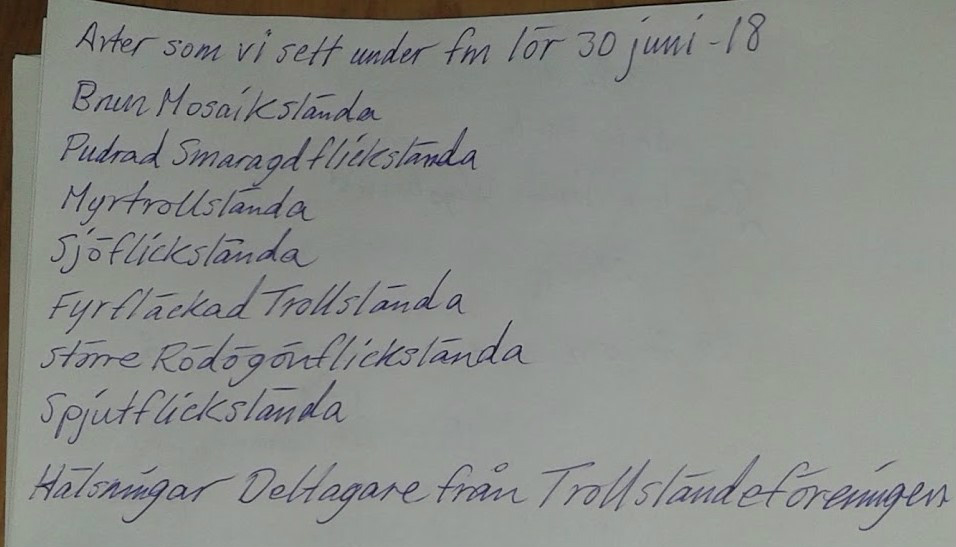 Arter som vi sett under fm lör 30 juni -18
Brun Mosaikslända
Pudrad Smaragdflickslända
Myrtrollslända
Sjöflickslända
Fyrfläckad Trollslända
större Rödögonflickslända
Spjutflickslända
Hälsningar Deltagare från Trollsländeföreningen